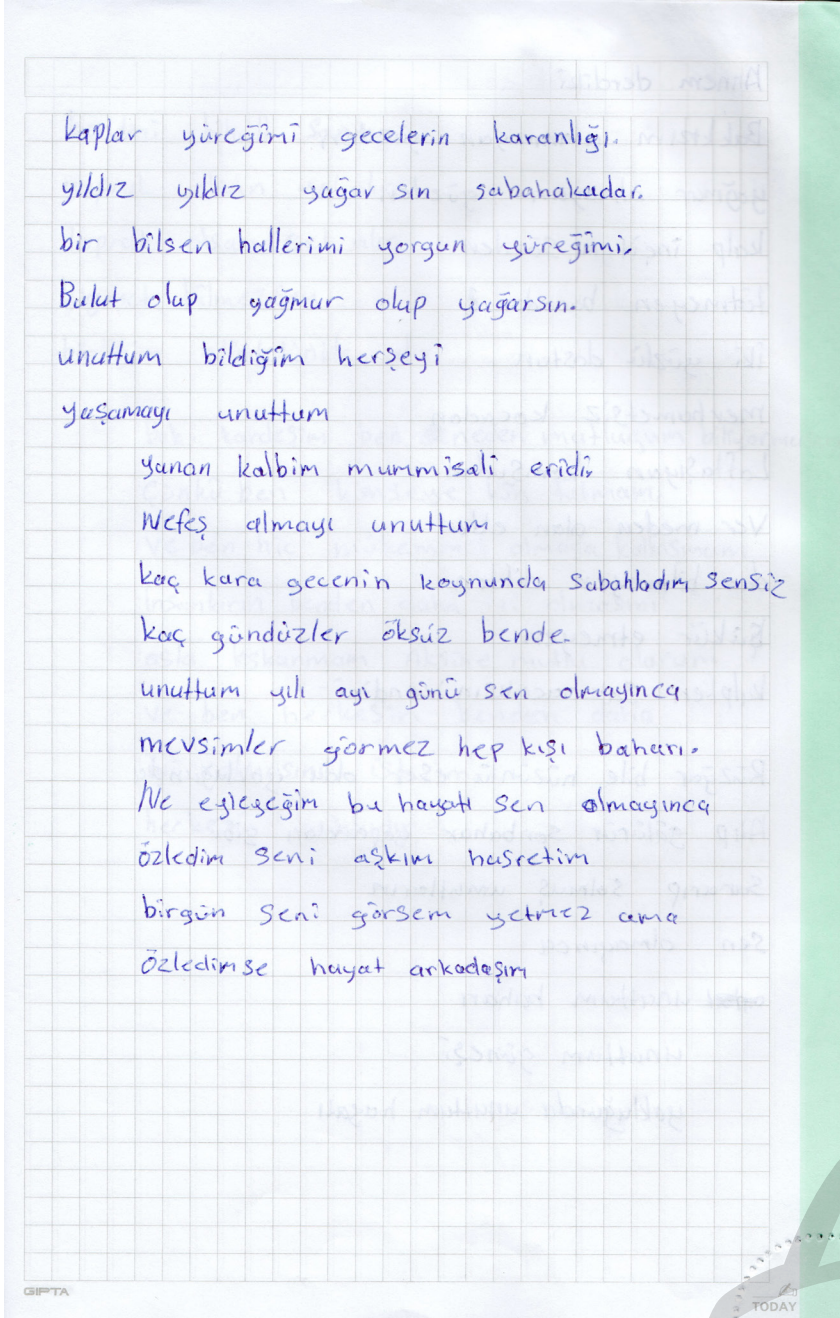 kaplar yüreğimi gecelerin karanlığı.
yıldız yıldız yağar sın sabahakadar.
bir bilsen hallerimi yorgun yüreğimi.
Bulut olup yağmur olup yağarsın.
unuttum bildiğim herşeyi
yaşamayı unuttum
yanan kalbim mummisali eridi.
Nefeş almayı unuttum
kaç kara gecenin koynunda sabahladım sensiz
kaç gündüzler öksüz bende.
unuttum yılı ayı günü sen olmayınca
mevsimler görmez hep kışı baharı.
Ne eyleyeğim bu hayatı sen olmayınca
özledim seni aşkım hasretim
birgün seni görsem yetmez ama
özledimse hayat arkadaşım
GIPTA
TODAY